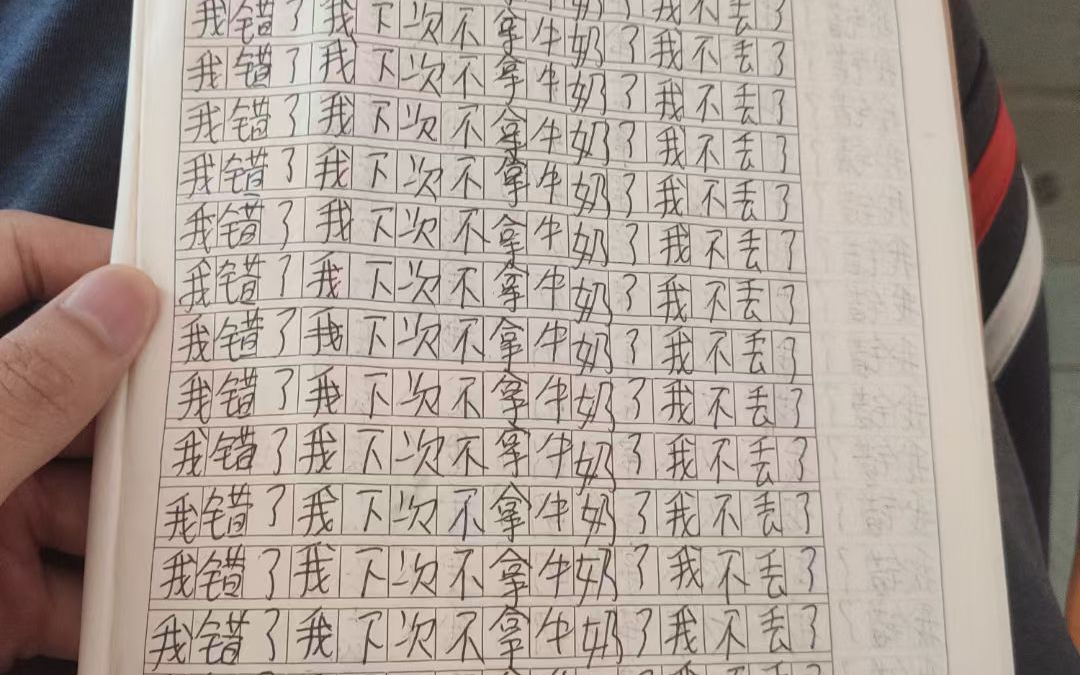 我错了我下次不拿牛奶了我不丢了
我错了我下次不拿牛奶了我不丢了
我错了我下次不拿牛奶了我不丢了
我错了我下次不拿牛奶了我不丢了
我错了我下次不拿牛奶了我不丢了
我错了我下次不拿牛奶了我不丢了
我错了我下次不拿牛奶了我不丢了
我错了我下次不拿牛奶了我不丢了
我错了我下次不拿牛奶了我不丢了
我错了我下次不拿牛奶了我不丢了
我错了我下次不拿牛奶了我不丢了
我错了我下次不拿牛奶了我不丢了